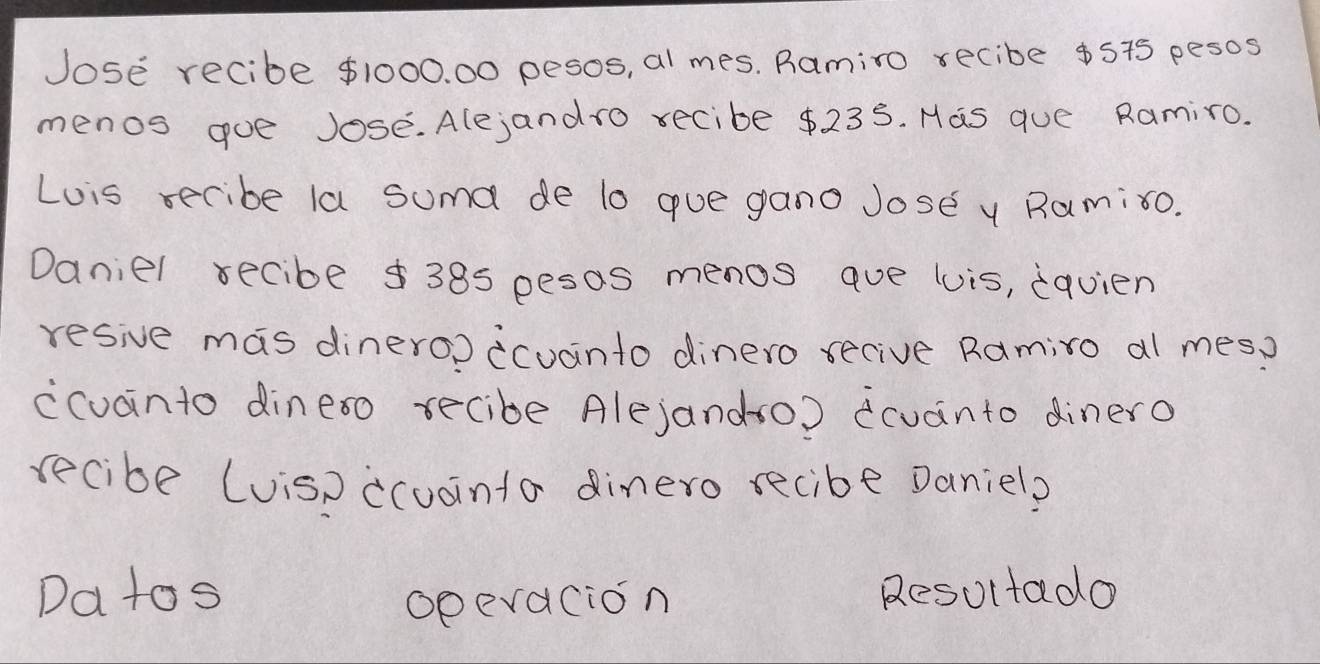 José recibe $1000.00 pesos, al mes. Ramiro recibe $575 pesos
menos que José. Alejandro recibe $235. Más que Ramiro.
Luis recibe la suma de lo que gano José y Ramiro.
Daniel recibe $385 pesos menos que luis, ¿quien
resive más dinero? ¿cuánto dinero recive Ramiro al mes?
¿cuánto dinero recibe Alejandro? ¿cuánto dinero
recibe Luis? ¿cuánto dinero recibe Daniel?
Datos operación Resultado